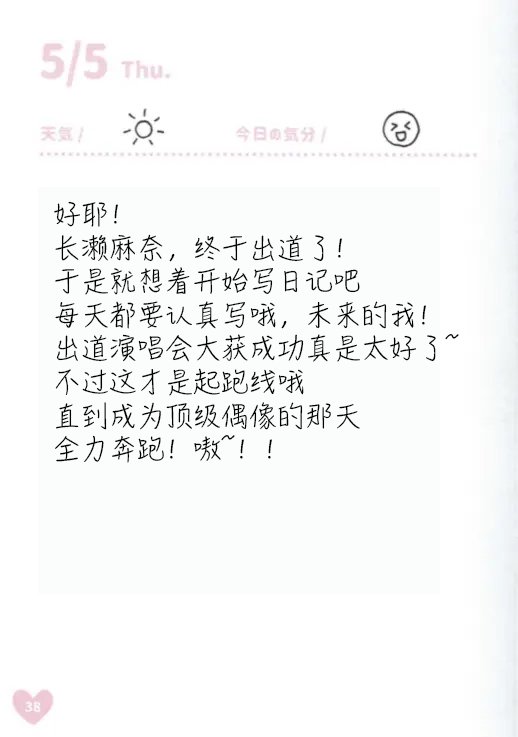 5/5 Thu.
天気/ 今日の気分/
好耶！
长濑麻奈，终于出道了！
于是就想着开始写日记吧
每天都要认真写哦，未来的我！
出道演唱会大获成功真是太好了~
不过这才是起跑线哦
直到成为顶级偶像的那天
全力奔跑！嗷~！！
38